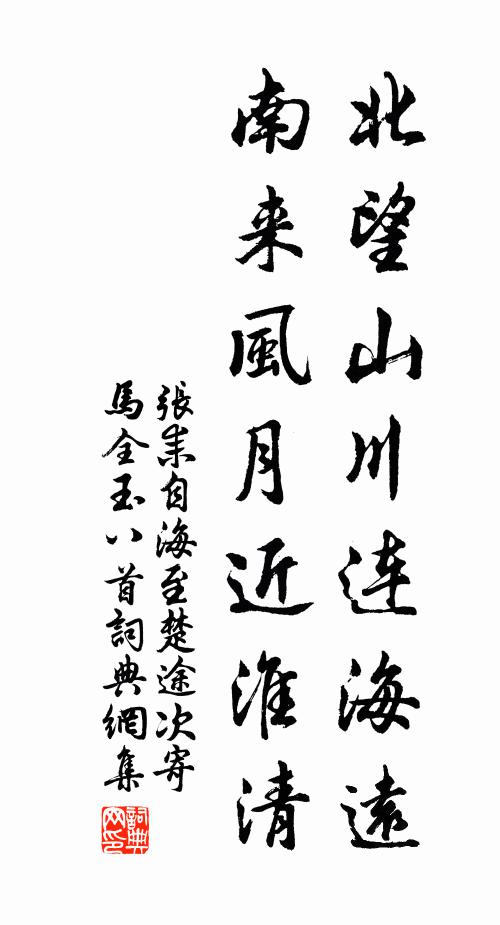 北望山川连海遠
南来風月近淮清
張耒自海至楚途次寄
馬全玉八首詞典網集
詞典
网印